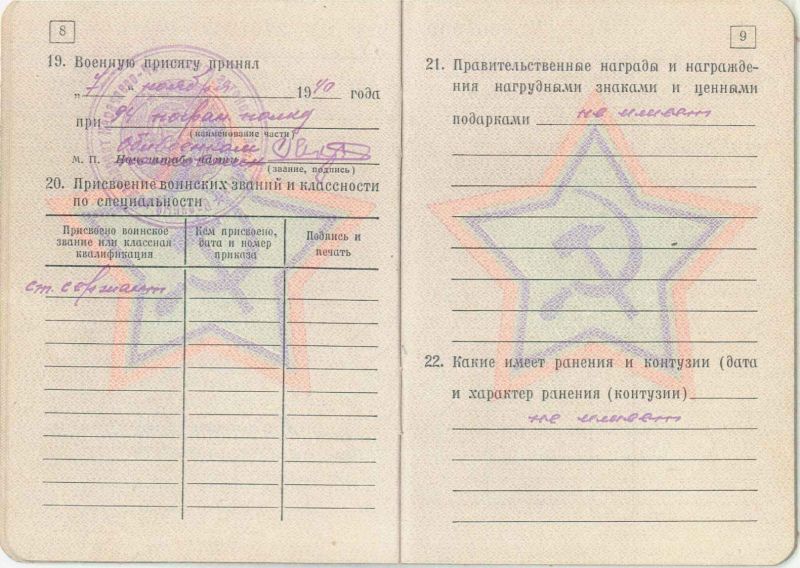 8
19. Военную присягу принял
„ 7 “ ноября 1940 года
при 94 погран полку
(наименование части)
Облвоенком
М. П. Нач. штаба части
(звание, подпись)
20. Присвоение воинских званий и классности
по специальности
Присвоено воинское
звание или классная
квалификация
Кем присвоено,
дата и номер
приказа
Подпись и
печать
ст. сержант
9
21. Правительственные награды и награжде-
ния нагрудными знаками и ценными
подарками не имеет
22. Какие имеет ранения и контузии (дата
и характер ранения (контузии)
не имеет